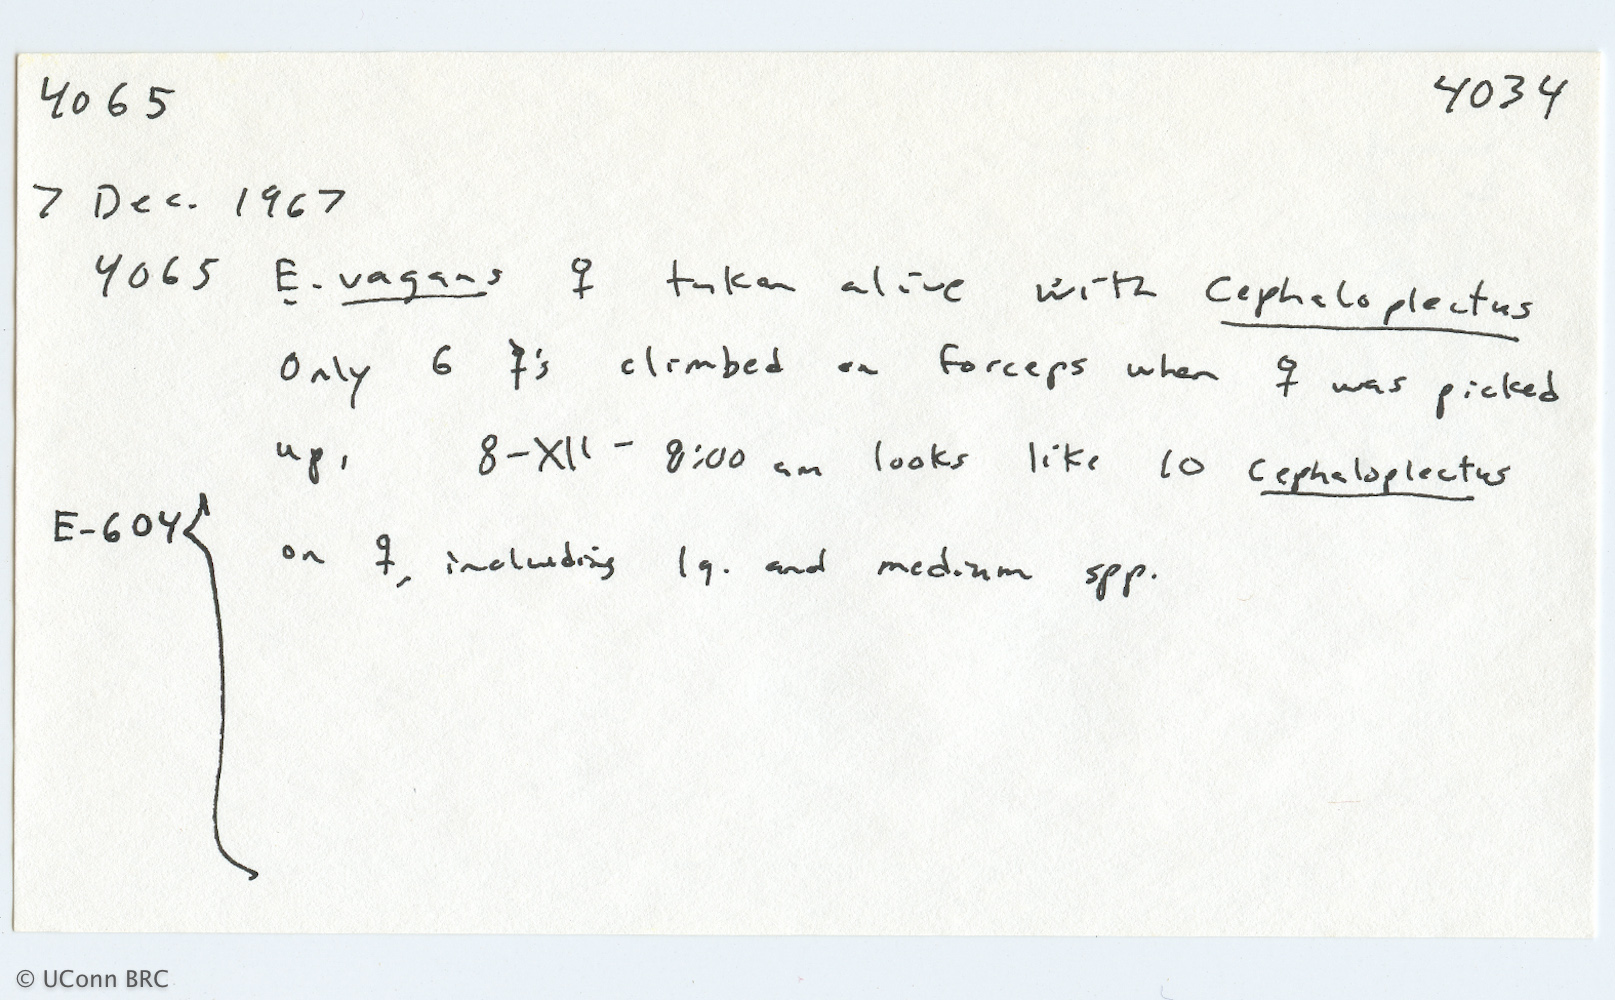 4065 4034
7 Dec. 1967
4065 E. vagans ♀ taken alive with Cephaloplectus
Only 6 ☿'s climbed on forceps when ♀ was picked
up, 8-XII - 8:00 am looks like 10 Cephaloplectus
E-604 on ♀, including lg. and medium spp.
© UConn BRC